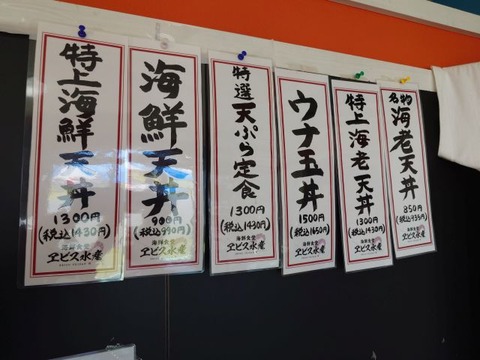 特上海鮮天丼
1300円
(税込1430円)
海鮮食堂
ヱビス水産
海鮮天丼
900円
(税込990円)
海鮮食堂
ヱビス水産
特選天ぷら定食
1300円
(税込1430円)
海鮮食堂
ヱビス水産
ウナ玉丼
1500円
(税込1650円)
海鮮食堂
ヱビス水産
特上海老天丼
1300円
(税込1430円)
海鮮食堂
ヱビス水産
名物
海老天丼
850円
(税込935円)
海鮮食堂
ヱビス水産